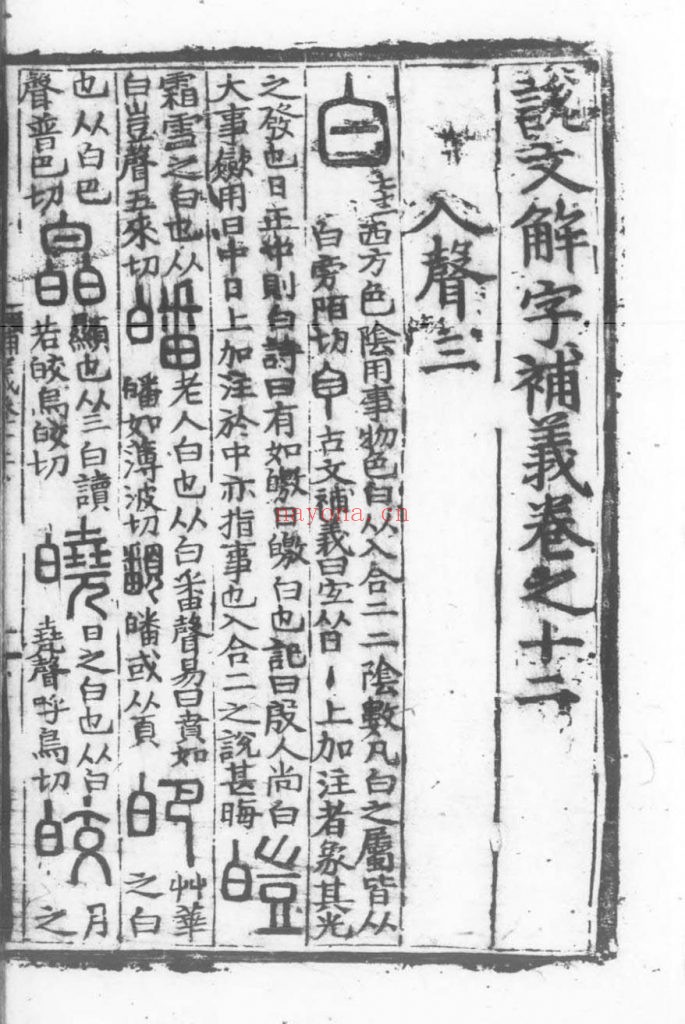 說文解字補義卷之十二
入聲三
白 西方色陰用事物色白从入合二二陰數凡白之屬皆从
白旁陌切 古文補義曰 上加注者象其光
之發也日正中則白詩曰有如皦日皦白也記曰殷人尚白
大事斂用日中日上加注於中亦指事也入合二之說甚晦
皚 霜雪之白也从
白豈聲五來切
皤 老人白也从白番聲易曰賁如
皤如薄波切 皤或从頁
皅 艸華
之白
也从白巴
聲普巴切
皛 顯也从三白讀
若皎烏皎切
皢 日之白也从白
堯聲呼鳥切
皎 月
之
nayona.cn